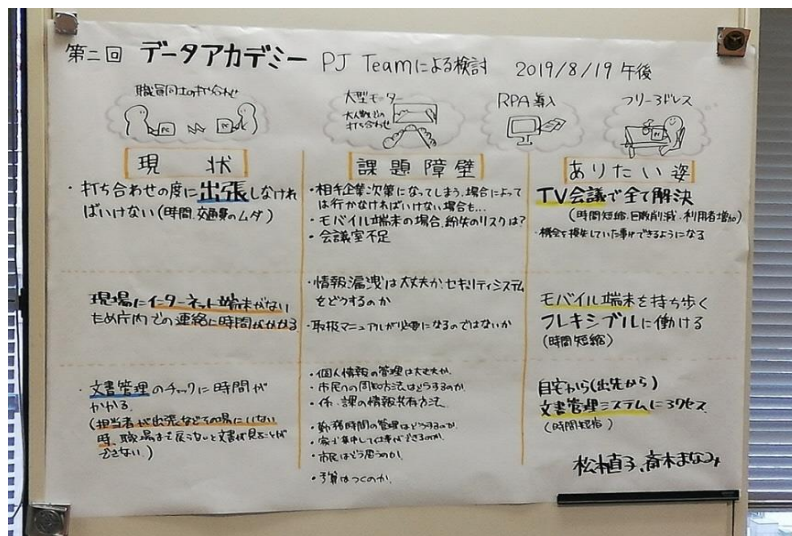 第二回 データアカデミー PJ Teamによる検討 2019/8/19 午後
職員同士の打ち合わせ
PC
大型モーター
大人数での
打ち合わせ
RPA導入
フリーアドレス
PC
現 状
・打ち合わせの度に出張しなけれ
ばいけない(時間、交通費のムダ)
現場にインターネット端末がない
ため庁内での連絡に時間がかかる
・文書管理のチェックに時間が
かかる
(担当者が出張などその場にいない
時、職場まで戻らないと文書が見ることが
できない)
課題障壁
・相手企業次第になってしまう、場合によって
は行かなければいけない場合も…
・モバイル端末の場合、紛失のリスクは?
・会議室不足
・情報漏洩は大丈夫か、セキュリティシステム
をどうするのか
・取扱マニュアルが必要になるのではないか
・個人情報の管理は大丈夫か。
・市民への周知方法はどうするのか。
・係・課の情報共有方法
・勤務時間の管理はどうするのか。
・家で集中して仕事ができるのか。
・市民はどう思うのか。
・予算はつくのか。
ありたい姿
TV会議で全て解決
(時間短縮・回数削減・利用者増加)
・機会を損失していた事ができるようになる
モバイル端末を持ち歩く
フレキシブルに働ける
(時間短縮)
自宅から(出先から)
文書管理システムにアクセス
(時間短縮)
松本直子、斎木まなつ